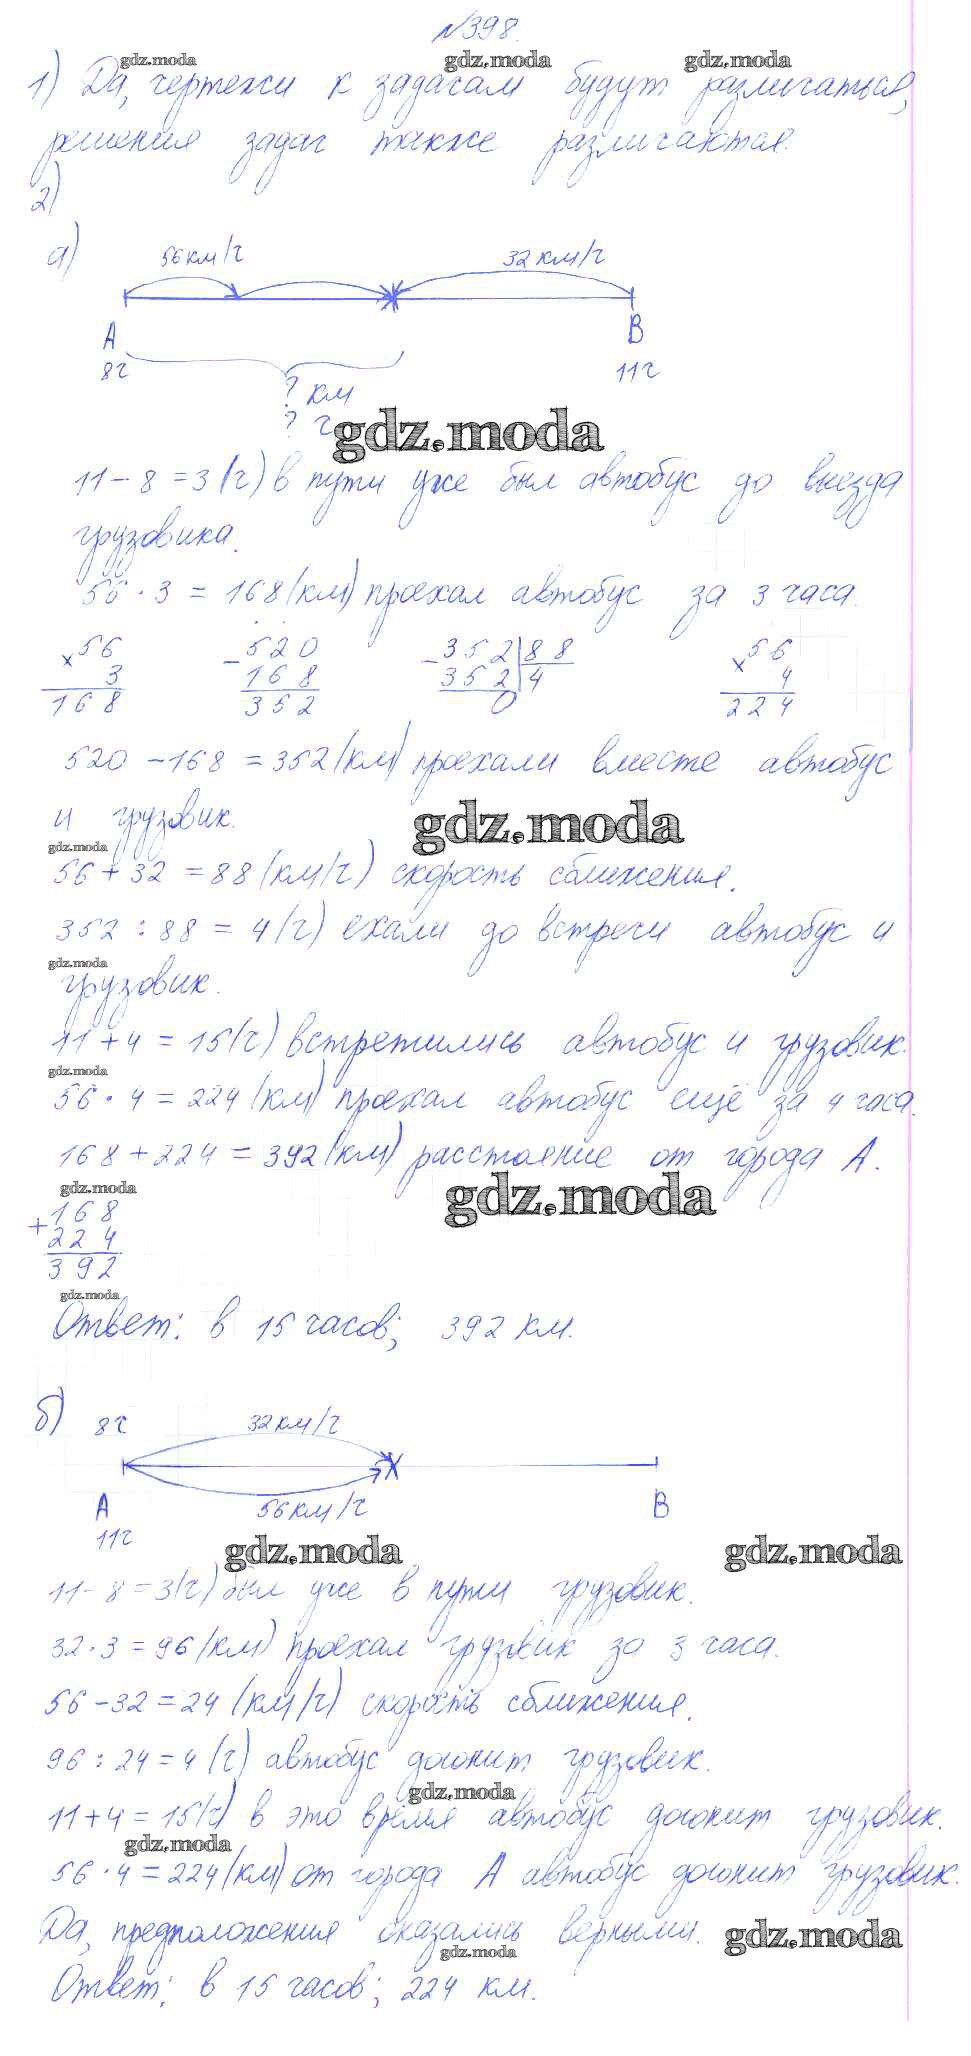 №398.
gdz.moda gdz.moda gdz.moda
1) Да, чертежи к задачам будут различаться,
решения задач также различаются.
2)
а) 56км/ч 32 км/ч
А В
8ч 11ч
? км
? ч
gdz.moda
11 - 8 = 3 (ч) в пути уже был автобус до выезда
грузовика.
56 · 3 = 168 (км) проехал автобус за 3 часа.
× 56 - 520 - 352 | 88 × 56
3 168 352 | 4 4
168 352 0 224
520 - 168 = 352 (км) проехали вместе автобус
и грузовик.
gdz.moda
gdz.moda
56 + 32 = 88 (км/ч) скорость сближения.
352 : 88 = 4 (ч) ехали до встречи автобус и
gdz.moda
грузовик.
11 + 4 = 15 (ч) встретились автобус и грузовик.
gdz.moda
56 · 4 = 224 (км) проехал автобус ещё за 4 часа.
168 + 224 = 392 (км) расстояние от города А.
gdz.moda gdz.moda
+ 168
224
392
gdz.moda
Ответ: в 15 часов; 392 км.
б) 8ч 32 км/ч
А 56 км/ч В
11ч
gdz.moda gdz.moda
11 - 8 = 3 (ч) был уже в пути грузовик.
32 · 3 = 96 (км) проехал грузовик за 3 часа.
56 - 32 = 24 (км/ч) скорость сближения.
96 : 24 = 4 (ч) автобус догонит грузовик.
gdz.moda
11 + 4 = 15 (ч) в это время автобус догонит грузовик.
gdz.moda
56 · 4 = 224 (км) от города А автобус догонит грузовик.
Да, предположения оказались верными.
gdz.moda
gdz.moda
Ответ: в 15 часов; 224 км.